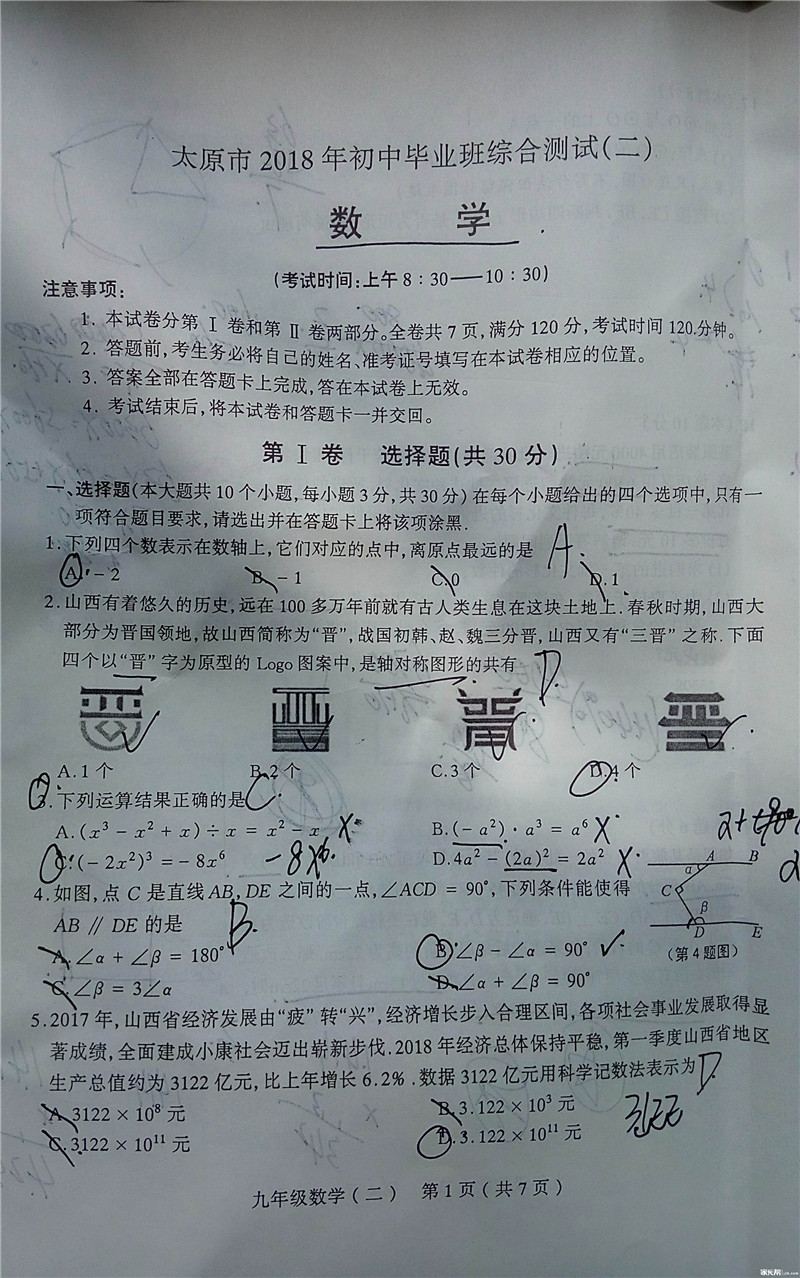 太原市2018年初中毕业班综合测试(二)
数 学
(考试时间:上午8:30——10:30)
注意事项:
1. 本试卷分第Ⅰ卷和第Ⅱ卷两部分。全卷共7页,满分120分,考试时间120分钟。
2. 答题前,考生务必将自己的姓名、准考证号填写在本试卷相应的位置。
3. 答案全部在答题卡上完成,答在本试卷上无效。
4. 考试结束后,将本试卷和答题卡一并交回。
第Ⅰ卷 选择题(共30分)
一、选择题(本大题共10个小题,每小题3分,共30分)在每个小题给出的四个选项中,只有一
项符合题目要求,请选出并在答题卡上将该项涂黑.
1.下列四个数表示在数轴上,它们对应的点中,离原点最远的是 A.
A.-2 B.-1 C.0 D.1
2.山西有着悠久的历史,远在100多万年前就有古人类生息在这块土地上.春秋时期,山西大
部分为晋国领地,故山西简称为“晋”,战国初韩、赵、魏三分晋,山西又有“三晋”之称.下面
四个以“晋”字为原型的Logo图案中,是轴对称图形的共有 D.
A.1个 B.2个 C.3个 D.4个
3.下列运算结果正确的是 C.
A.(x³-x²+x)÷x=x²-x X. B.(-a²)·a³=a⁶ X
C.(-2x²)³=-8x⁶ -8x⁶. D.4a²-(2a)²=2a² X.
4.如图,点C是直线AB,DE之间的一点,∠ACD=90°,下列条件能使得
AB∥DE的是 B.
A.∠α+∠β=180° B.∠β-∠α=90° ✓
C.∠β=3∠α D.∠α+∠β=90°
A B
α
C
β
D E
(第4题图)
5.2017年,山西省经济发展由“疲”转“兴”,经济增长步入合理区间,各项社会事业发展取得显
著成绩,全面建成小康社会迈出崭新步伐.2018年经济总体保持平稳,第一季度山西省地区
生产总值约为3122亿元,比上年增长6.2%.数据3122亿元用科学记数法表示为 D.
A.3122×10⁸元 B.3.122×10³元
C.3122×10¹¹元 D.3.122×10¹¹元
3122
九年级数学(二) 第1页(共7页)
家长帮